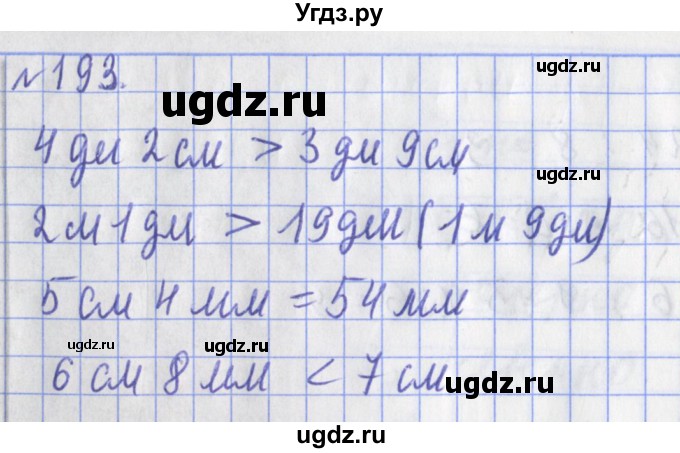 Угдз.ру
№193.
4 дм 2 см > 3 дм 9 см
2 м 1 дм > 19 дм (1 м 9 дм)
5 см 4 мм = 54 мм
6 см 8 мм < 7 см
ugdz.ru
ugdz.ru
ugdz.ru
ugdz.ru
ugdz.ru
ugdz.ru
ugdz.ru